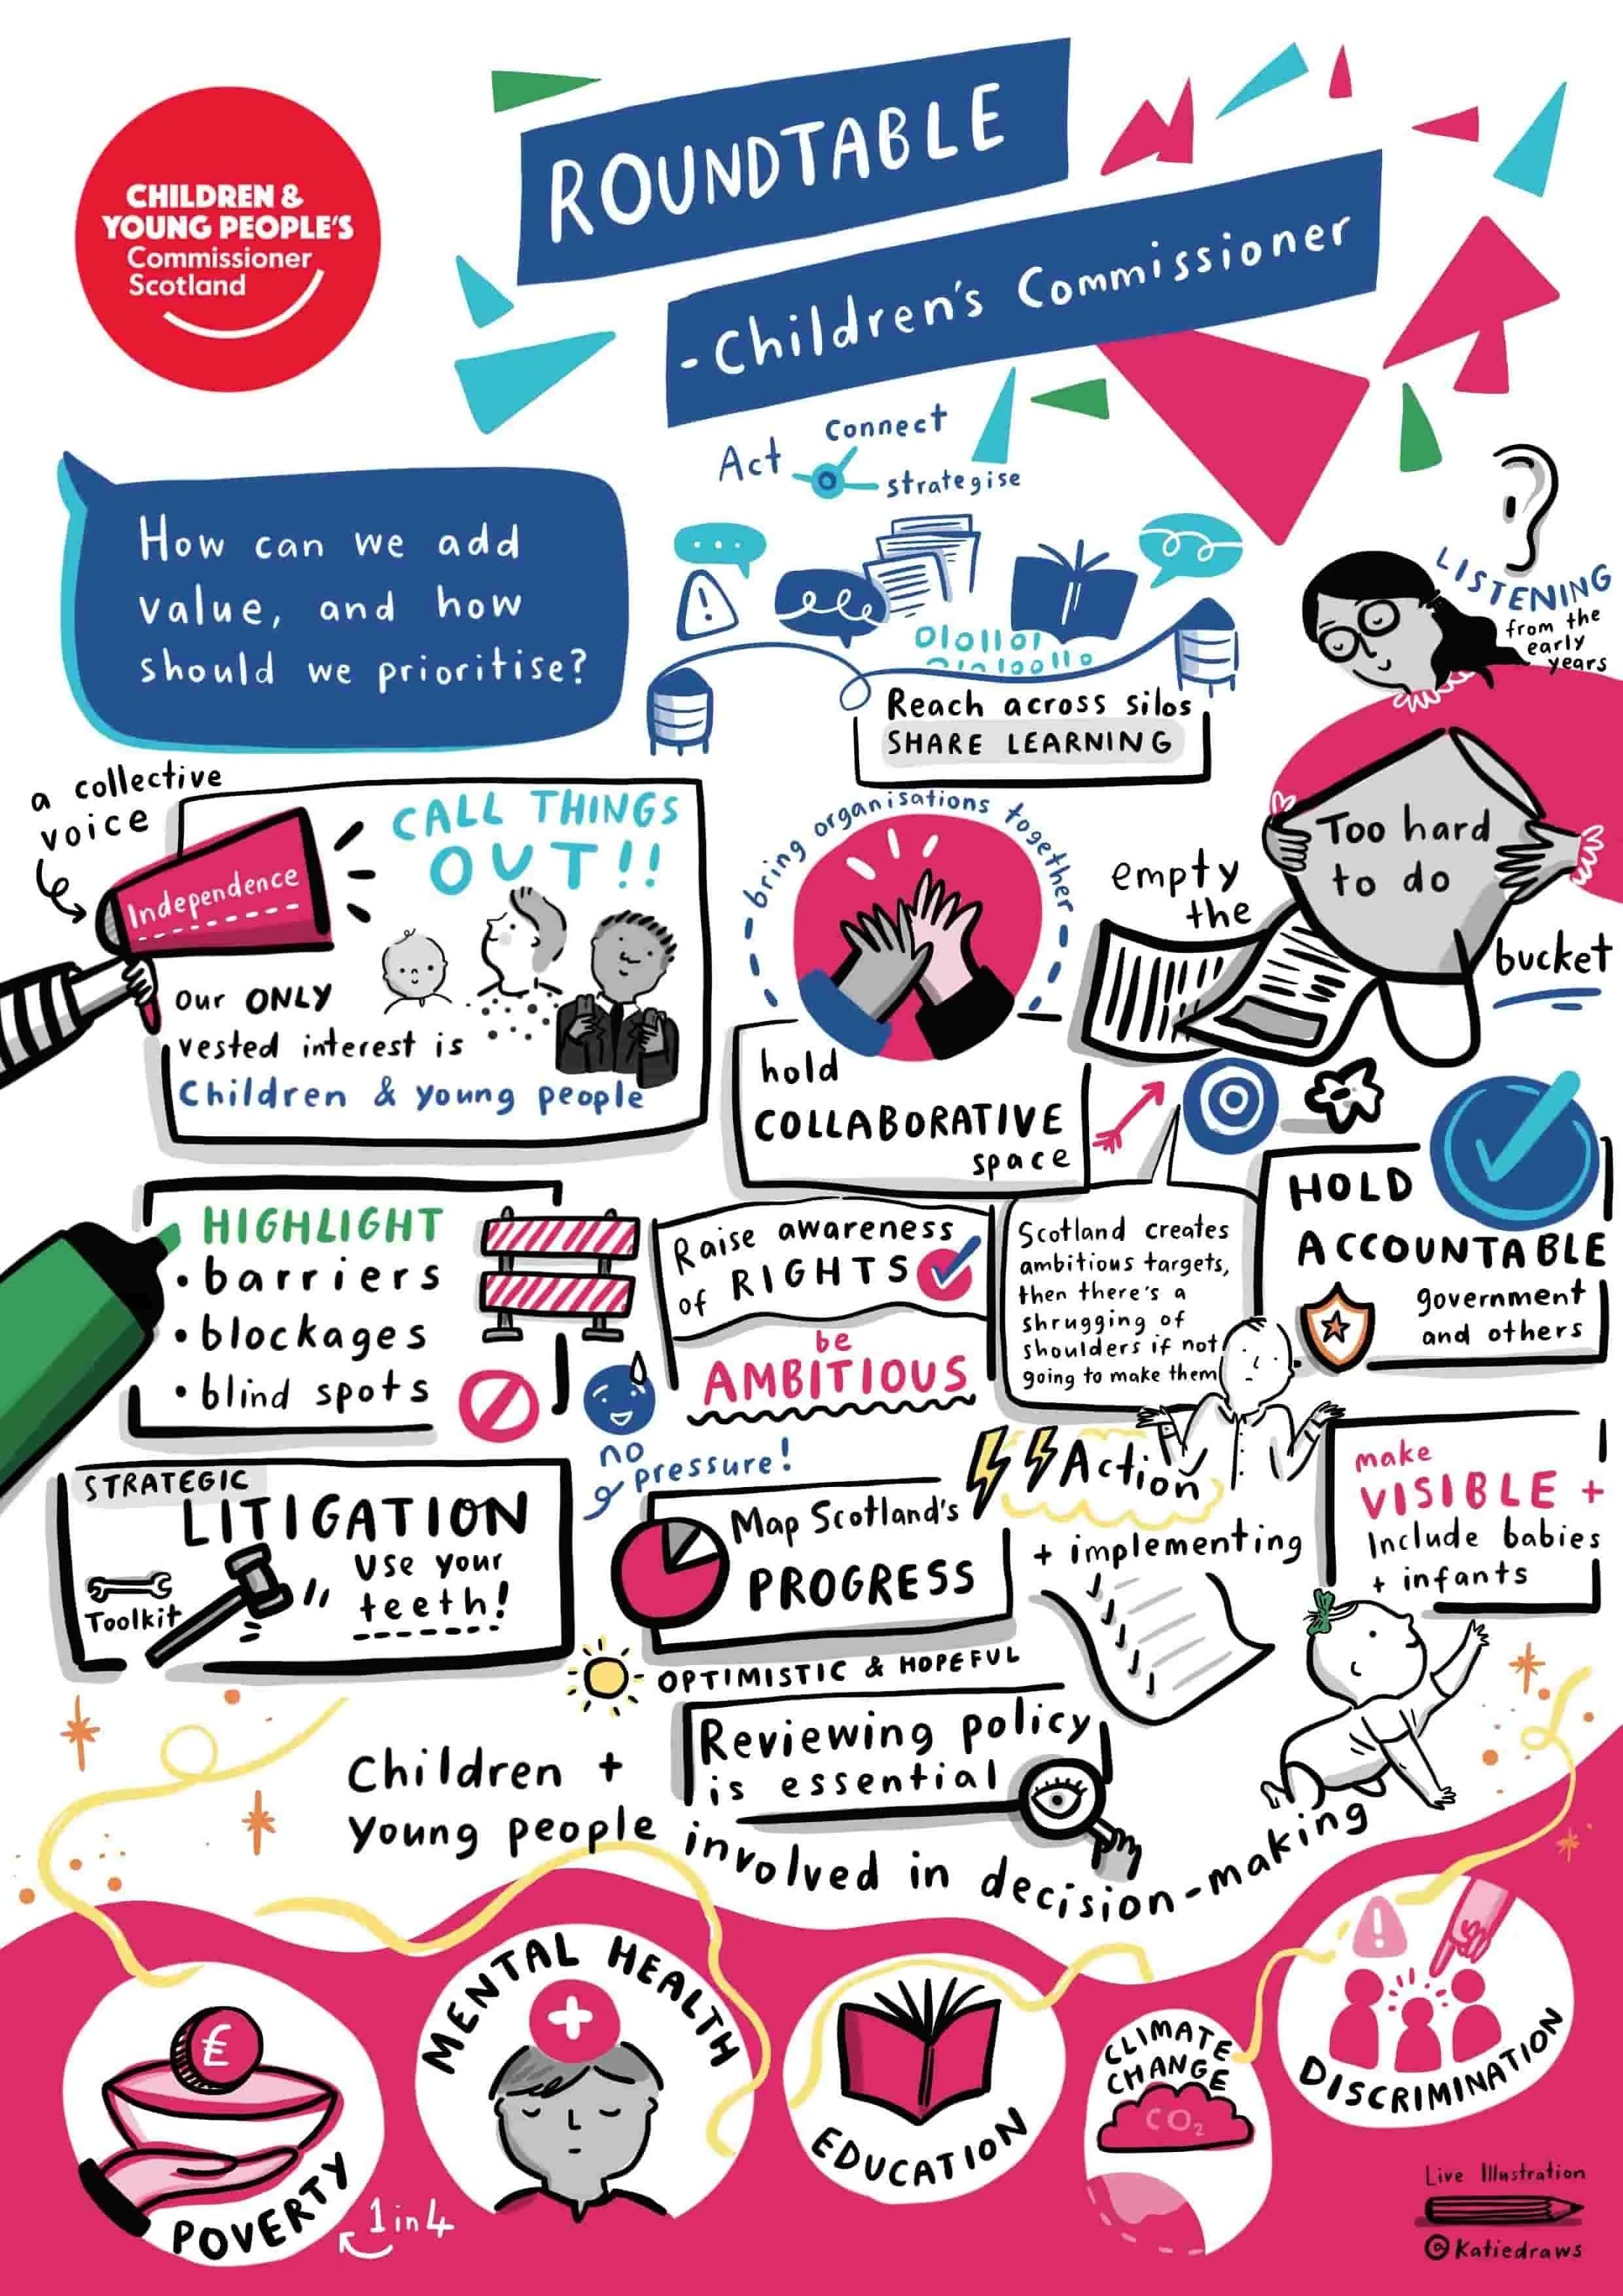 CHILDREN &
YOUNG PEOPLE'S
Commissioner
Scotland
ROUNDTABLE
- Children's Commissioner
Act
Connect
strategise
How can we add
value, and how
should we prioritise?
Reach across silos
SHARE LEARNING
LISTENING
from the
early
years
a collective
voice
Independence
CALL THINGS
OUT!!
our ONLY
vested interest is
Children & young people
bring organisations together
hold
COLLABORATIVE
space
empty
the
Too hard
to do
bucket
HIGHLIGHT
• barriers
• blockages
• blind spots
Raise awareness
of RIGHTS
be
AMBITIOUS
no
pressure!
Scotland creates
ambitious targets,
then there's a
shrugging of
shoulders if not
going to make them
HOLD
ACCOUNTABLE
government
and others
STRATEGIC
LITIGATION
use your
teeth!
Toolkit
Map Scotland's
PROGRESS
Action
+ implementing
make
VISIBLE +
Include babies
+ infants
OPTIMISTIC & HOPEFUL
Reviewing policy
is essential
Children +
young people involved in decision-making
POVERTY
1 in 4
MENTAL HEALTH
EDUCATION
CLIMATE
CHANGE
CO2
DISCRIMINATION
£
Live Illustration
@Katiedraws